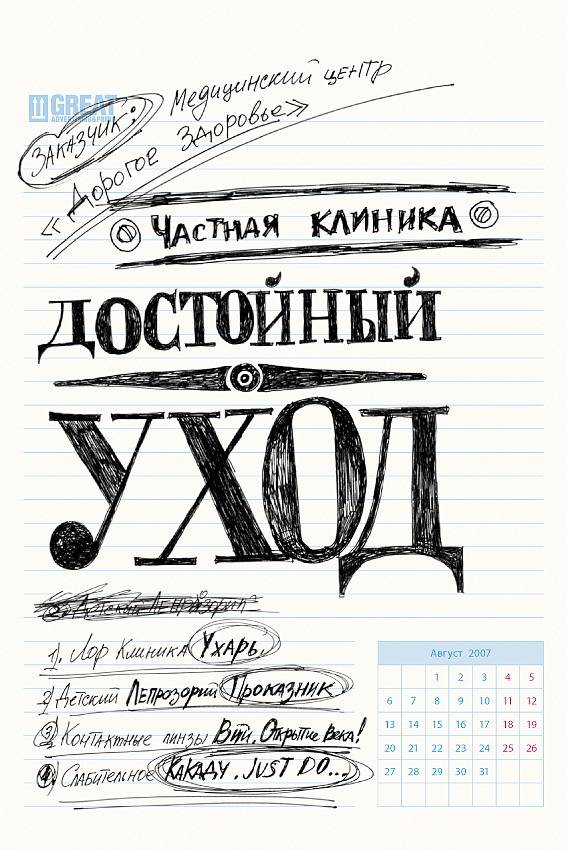 GREAT
ADVERTISING&PRINT
Заказчик: Медицинский центр
«Дорогое Здоровье»
Частная клиника
Достойный
Уход
Детский Лепрозорий
1). Лор Клиника Ухарь.
2) Детский Лепрозорий Проказник
3) Контактные линзы Вий. Открытие Века!
4) Слабительное Какаду. Just Do...
Август 2007
1 2 3 4 5
6 7 8 9 10 11 12
13 14 15 16 17 18 19
20 21 22 23 24 25 26
27 28 29 30 31